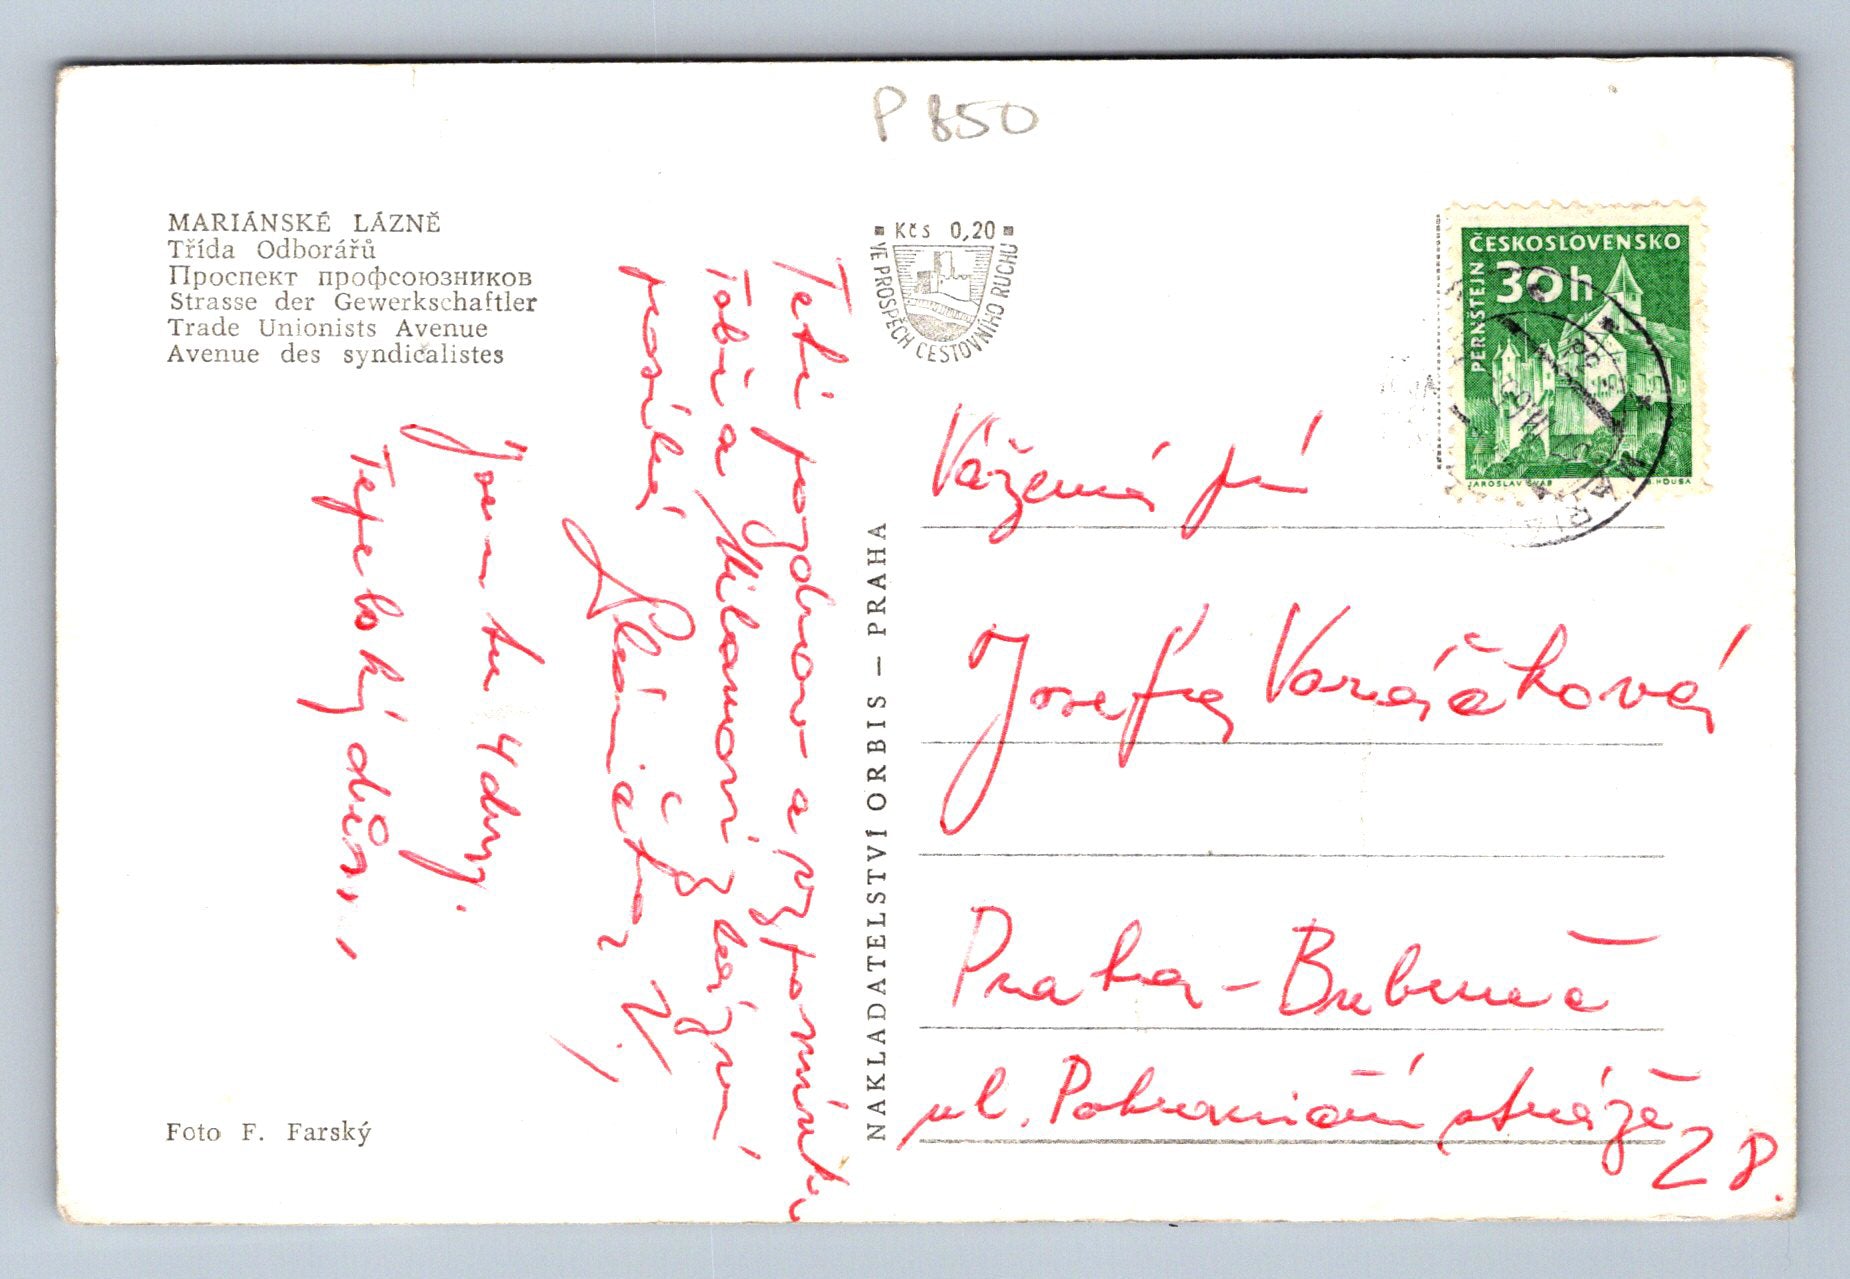 P 850
MARIÁNSKÉ LÁZNĚ
Třída Odborářů
Проспект профсоюзников
Strasse der Gewerkschaftler
Trade Unionists Avenue
Avenue des syndicalistes
Kčs 0,20
VE PROSPĚCH CESTOVNÍHO RUCHU
ČESKOSLOVENSKO
30h
PERNŠTEJN
JAROSLAV ŠVÁB
B. HOUSA
Teti pozdrav a vzpomínku
Tobě a Milanovi z lázní
posílá
V.
Jsem tu 4 dny.
Tepelský dům,
NAKLADATELSTVÍ ORBIS – PRAHA
Vážená pí
Josefa Voráčková
Praha - Bubeneč
ul. Pohraniční stráže
28.
Foto F. Farský